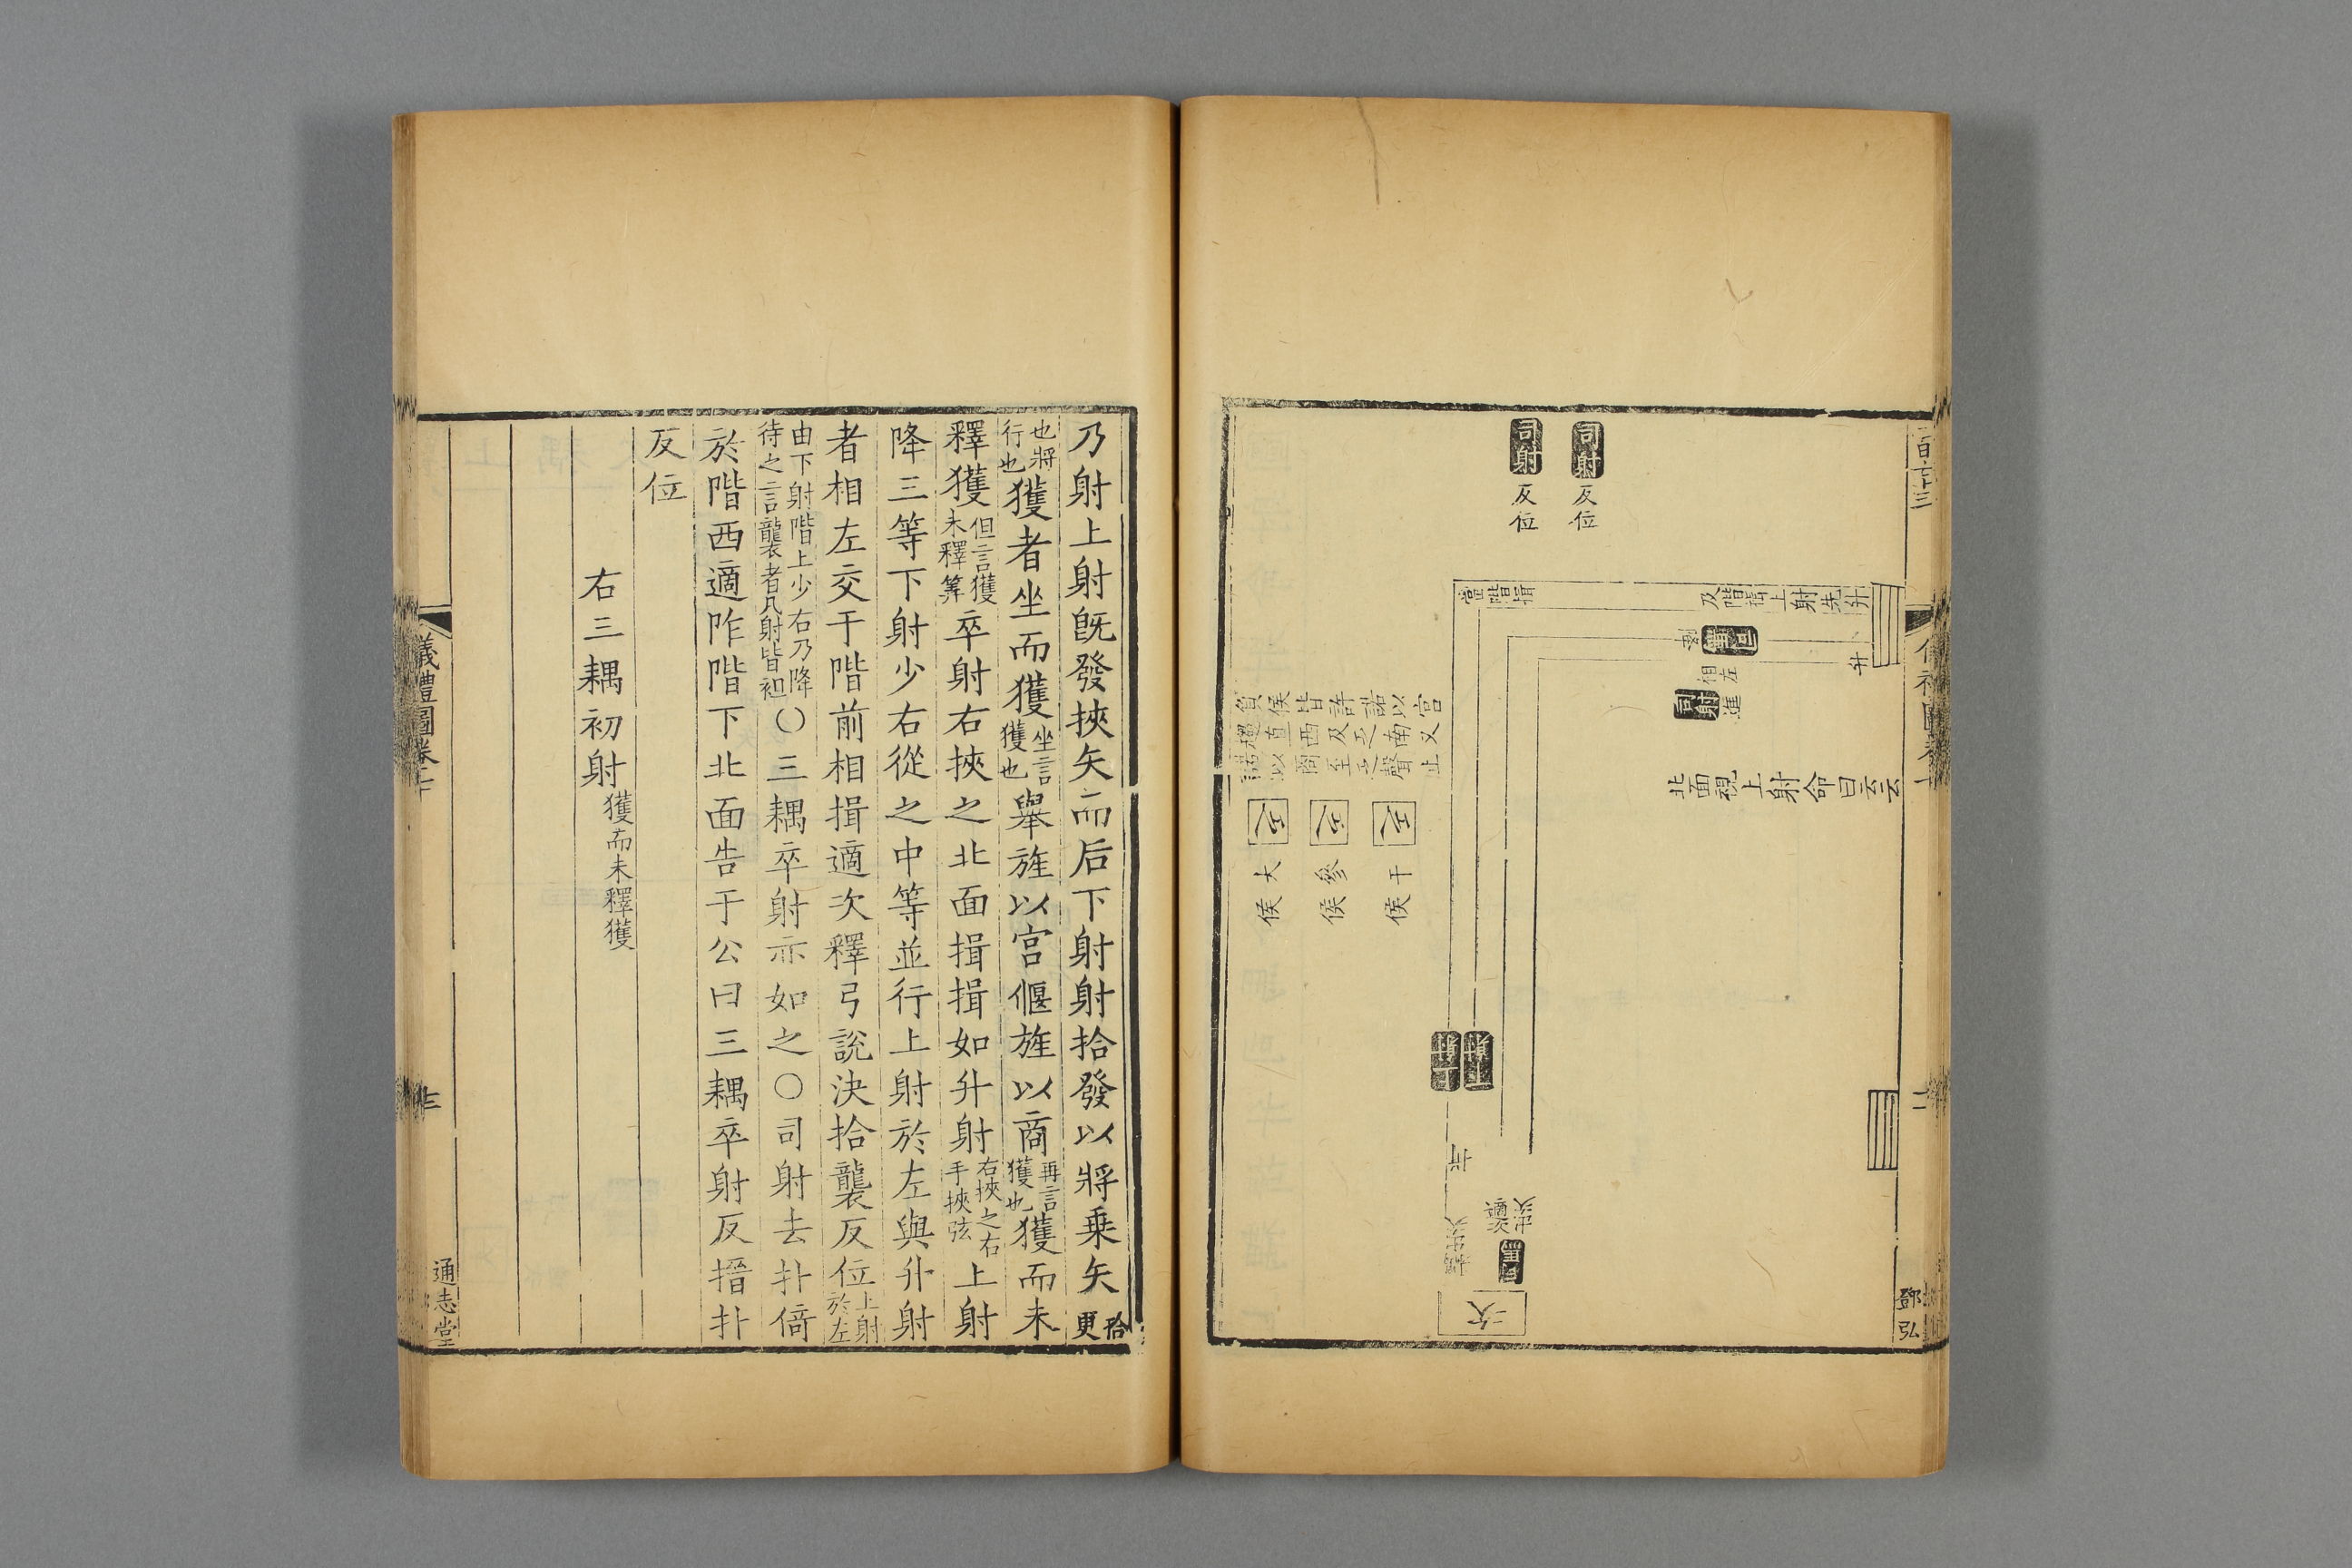 司射
反位
司射
反位
升
及階揖上射先升
當階揖
相左
司射
進
北面視上射命曰云云
負侯皆許諾以宮
趨直西及乏南又
諾以商至乏聲止
干侯
參侯
大侯
上射
下射
司馬
次
乃射上射既發挾矢而后下射射拾發以將乗矢拾更
也將行也獲者坐而獲坐言獲也舉旌以宮偃旌以商再言獲也獲而未
釋獲但言獲未釋筭卒射右挾之北面揖揖如升射右挾之右手挾弦上射
降三等下射少右從之中等並行上射於左與升射
者相左交于階前相揖適次釋弓說決拾襲反位上射於左
由下射階上少右乃降待之言襲者凡射皆袒〇三耦卒射亦如之〇司射去扑倚
於階西適阼階下北面告于公曰三耦卒射反搢扑
反位
右三耦初射獲而未釋獲
儀禮圖卷十
通志堂